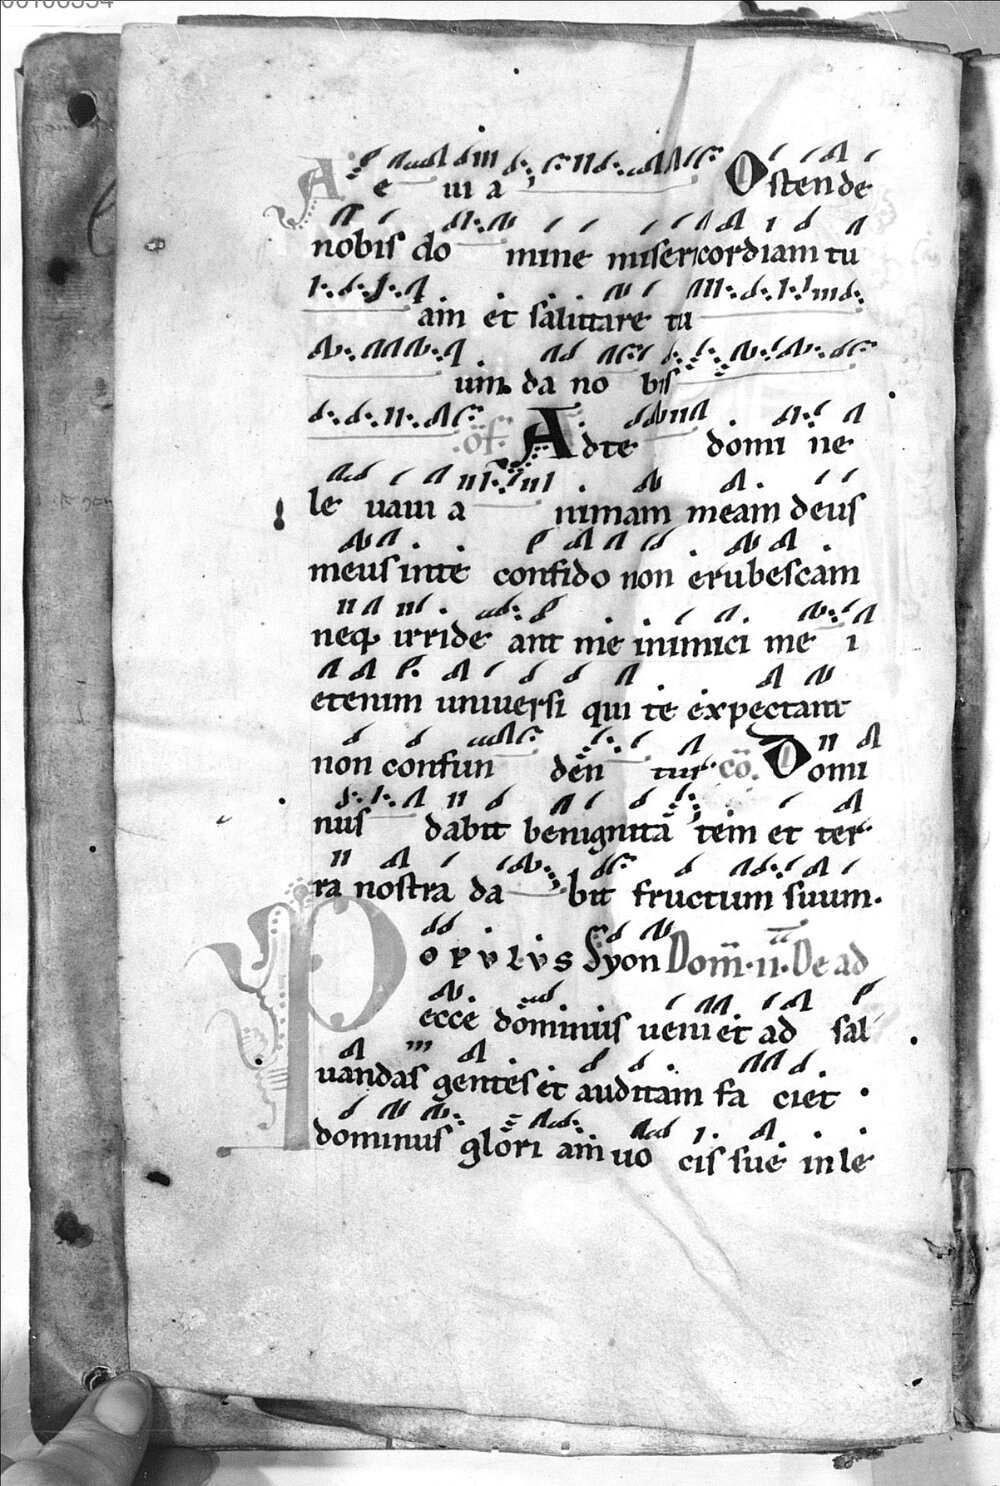 A e uia Ostende
nobis do mine misericordiam tu
am et salutare tu
um da no bis
of. Adte domi ne
le uaui a nimam meam deus
meus inte confido non erubescam
neq irride ant me inimici me i
etenim uniuersi qui te expectant
non confun den tur co. Domi
nus dabit benignita tem et ter
ra nostra da bit fructum suum.
Populus Syon Dom̄.ii.De ad
ecce dominus ueniet ad sal
uandas gentes et auditam fa ciet
dominus glori am uo cis sue in le